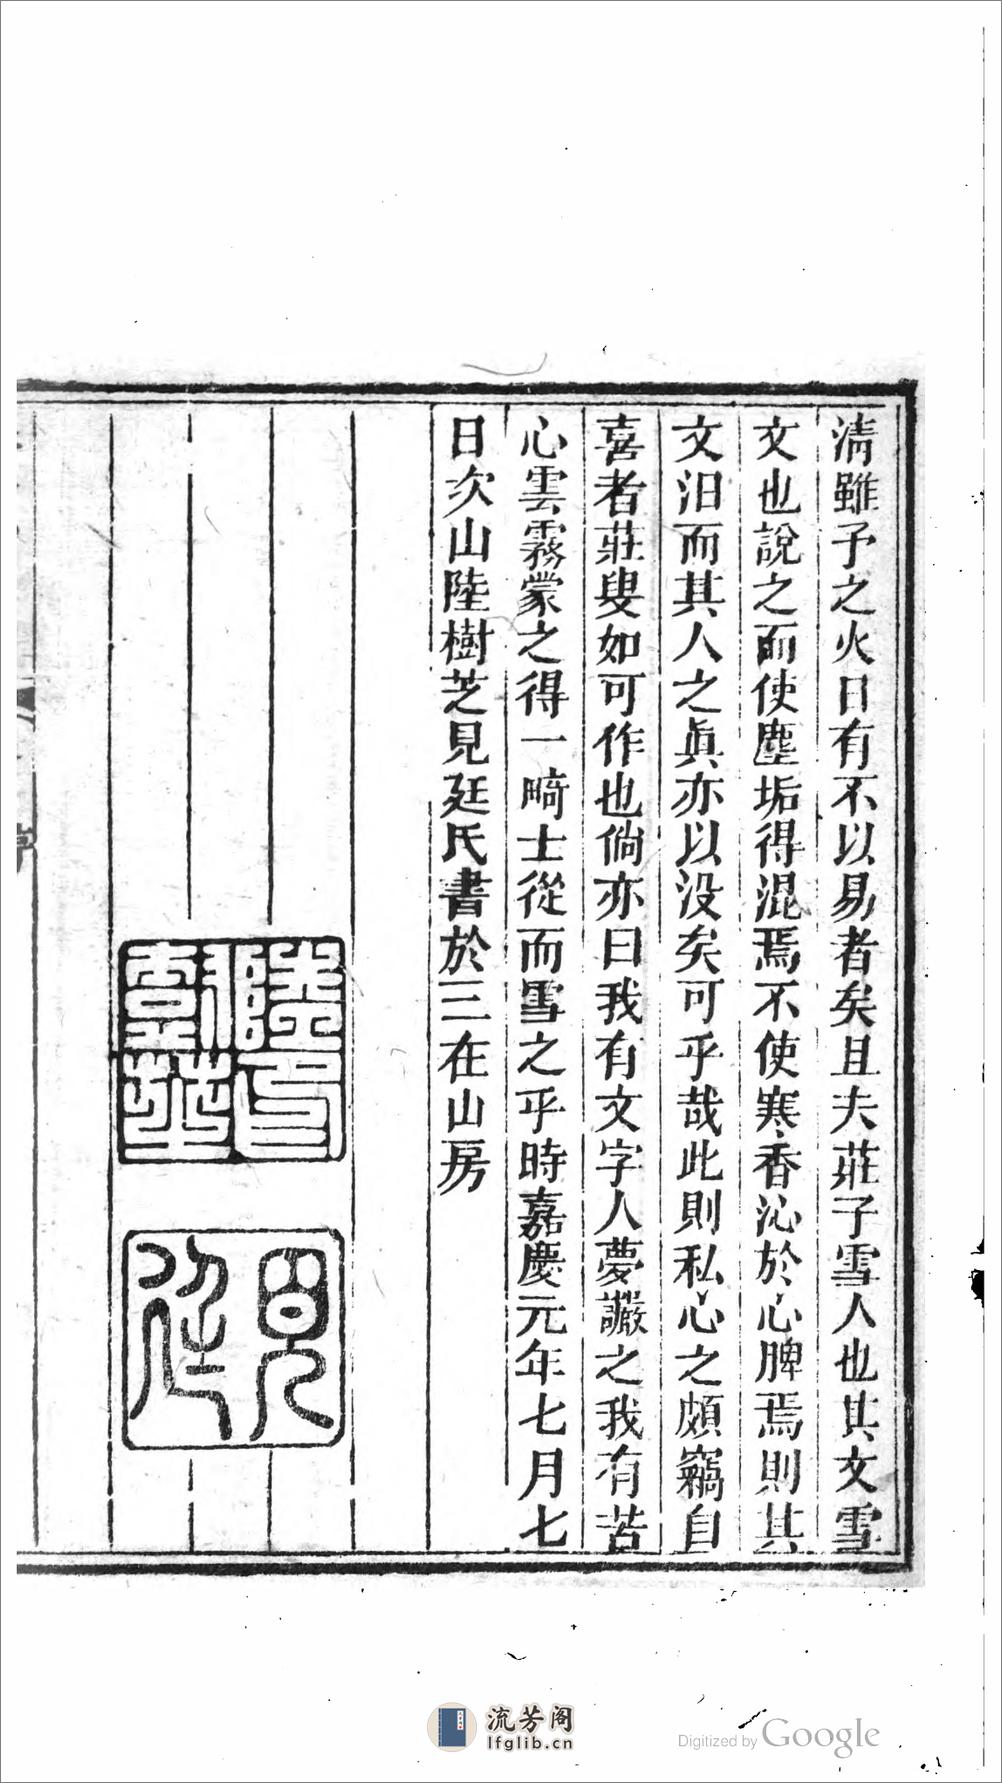 清雖予之火日有不以易者矣且夫莊子雪人也其文雪
文也說之而使塵垢得混焉不使寒香沁於心脾焉則其
文汨而其人之眞亦以没矣可乎哉此則私心之頗竊自
喜者莊叟如可作也倘亦曰我有文字人夢讝之我有苦
心雲霧蒙之得一畸士從而雪之乎時嘉慶元年七月七
日次山陸樹芝見廷氏書於三在山房
陸印樹芝
見廷
流芳阁
lfglib.cn
Digitized by Google